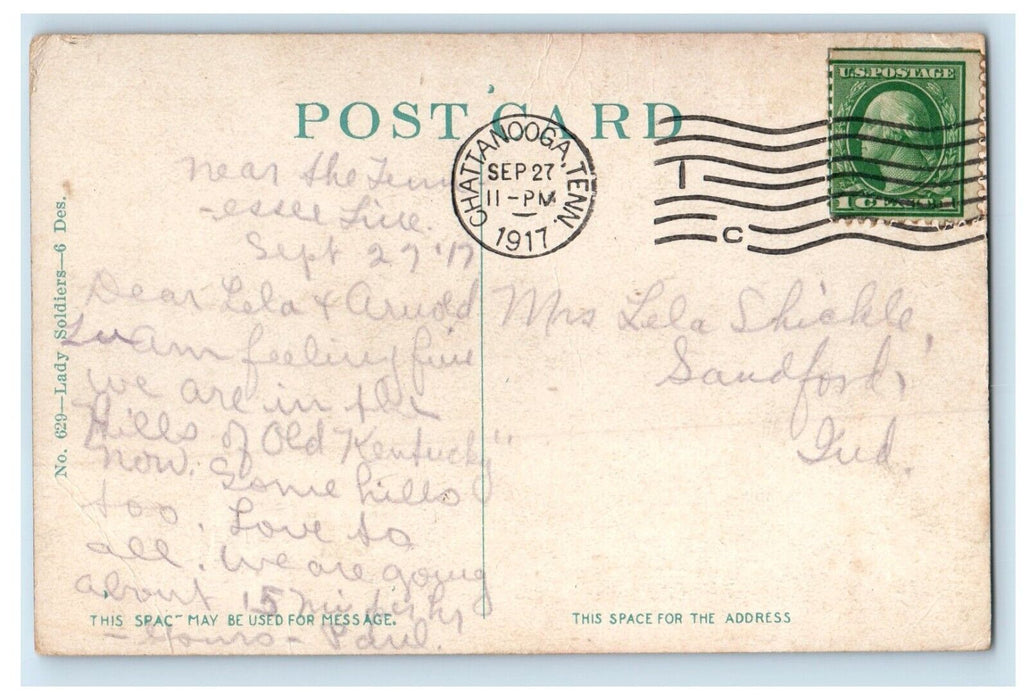 POST CARD
U.S. POSTAGE
CHATTANOOGA, TENN.
SEP 27
11-PM
1917
1
C
No. 629—Lady Soldiers—6 Des.
near the Tenn
-essee Line.
Sept 27 '17
Dear Lela & Arnold
am feeling fine
we are in the
Hills of Old Kentucky"
now. Some hills
too. Love to
all. We are going
about 15 mi
- Yours - Paul.
Mrs Lela Shickle,
Sandford,
Ind.
THIS SPACE MAY BE USED FOR MESSAGE.
THIS SPACE FOR THE ADDRESS